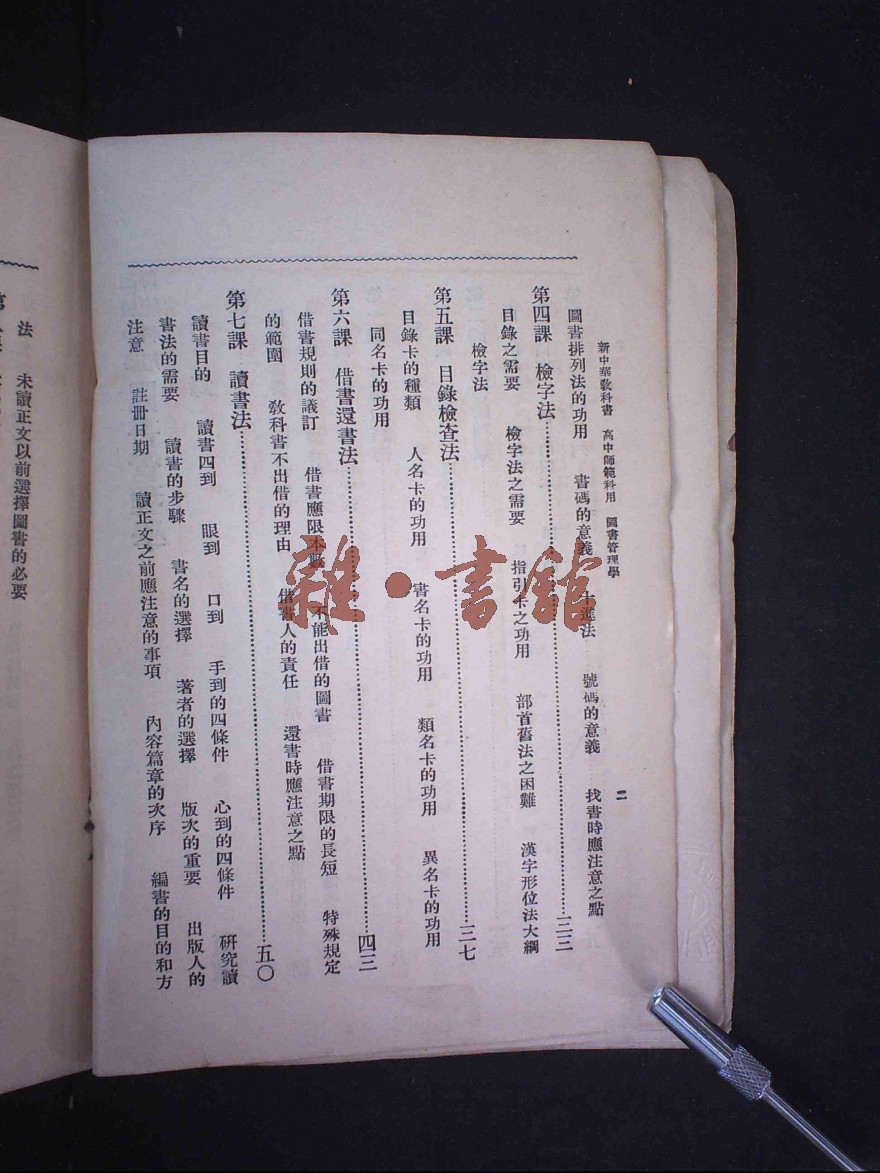 新中華敎科書　高中師範科用　圖書管理學
二
圖書排列法的功用　書碼的意義　十進法　號碼的意義　找書時應注意之點
第四課　檢字法……三三
目錄之需要　檢字法之需要　指引卡之功用　部首舊法之困難　漢字形位法大綱
檢字法
第五課　目錄檢查法……三七
目錄卡的種類　人名卡的功用　書名卡的功用　類名卡的功用　異名卡的功用
同名卡的功用
第六課　借書還書法……四三
借書規則的議訂　借書應限本數　不能出借的圖書　借書期限的長短　特殊規定
的範圍　敎科書不出借的理由　借書人的責任　還書時應注意之點
第七課　讀書法……五〇
讀書目的　讀書四到　眼到　口到　手到的四條件　心到的四條件　研究讀
書法的需要　讀書的步驟　書名的選擇　著者的選擇　版次的重要　出版人的
注意　註册日期　讀正文之前應注意的事項　內容篇章的次序　編書的目的和方
法　未讀正文以前選擇圖書的必要
雜・書館